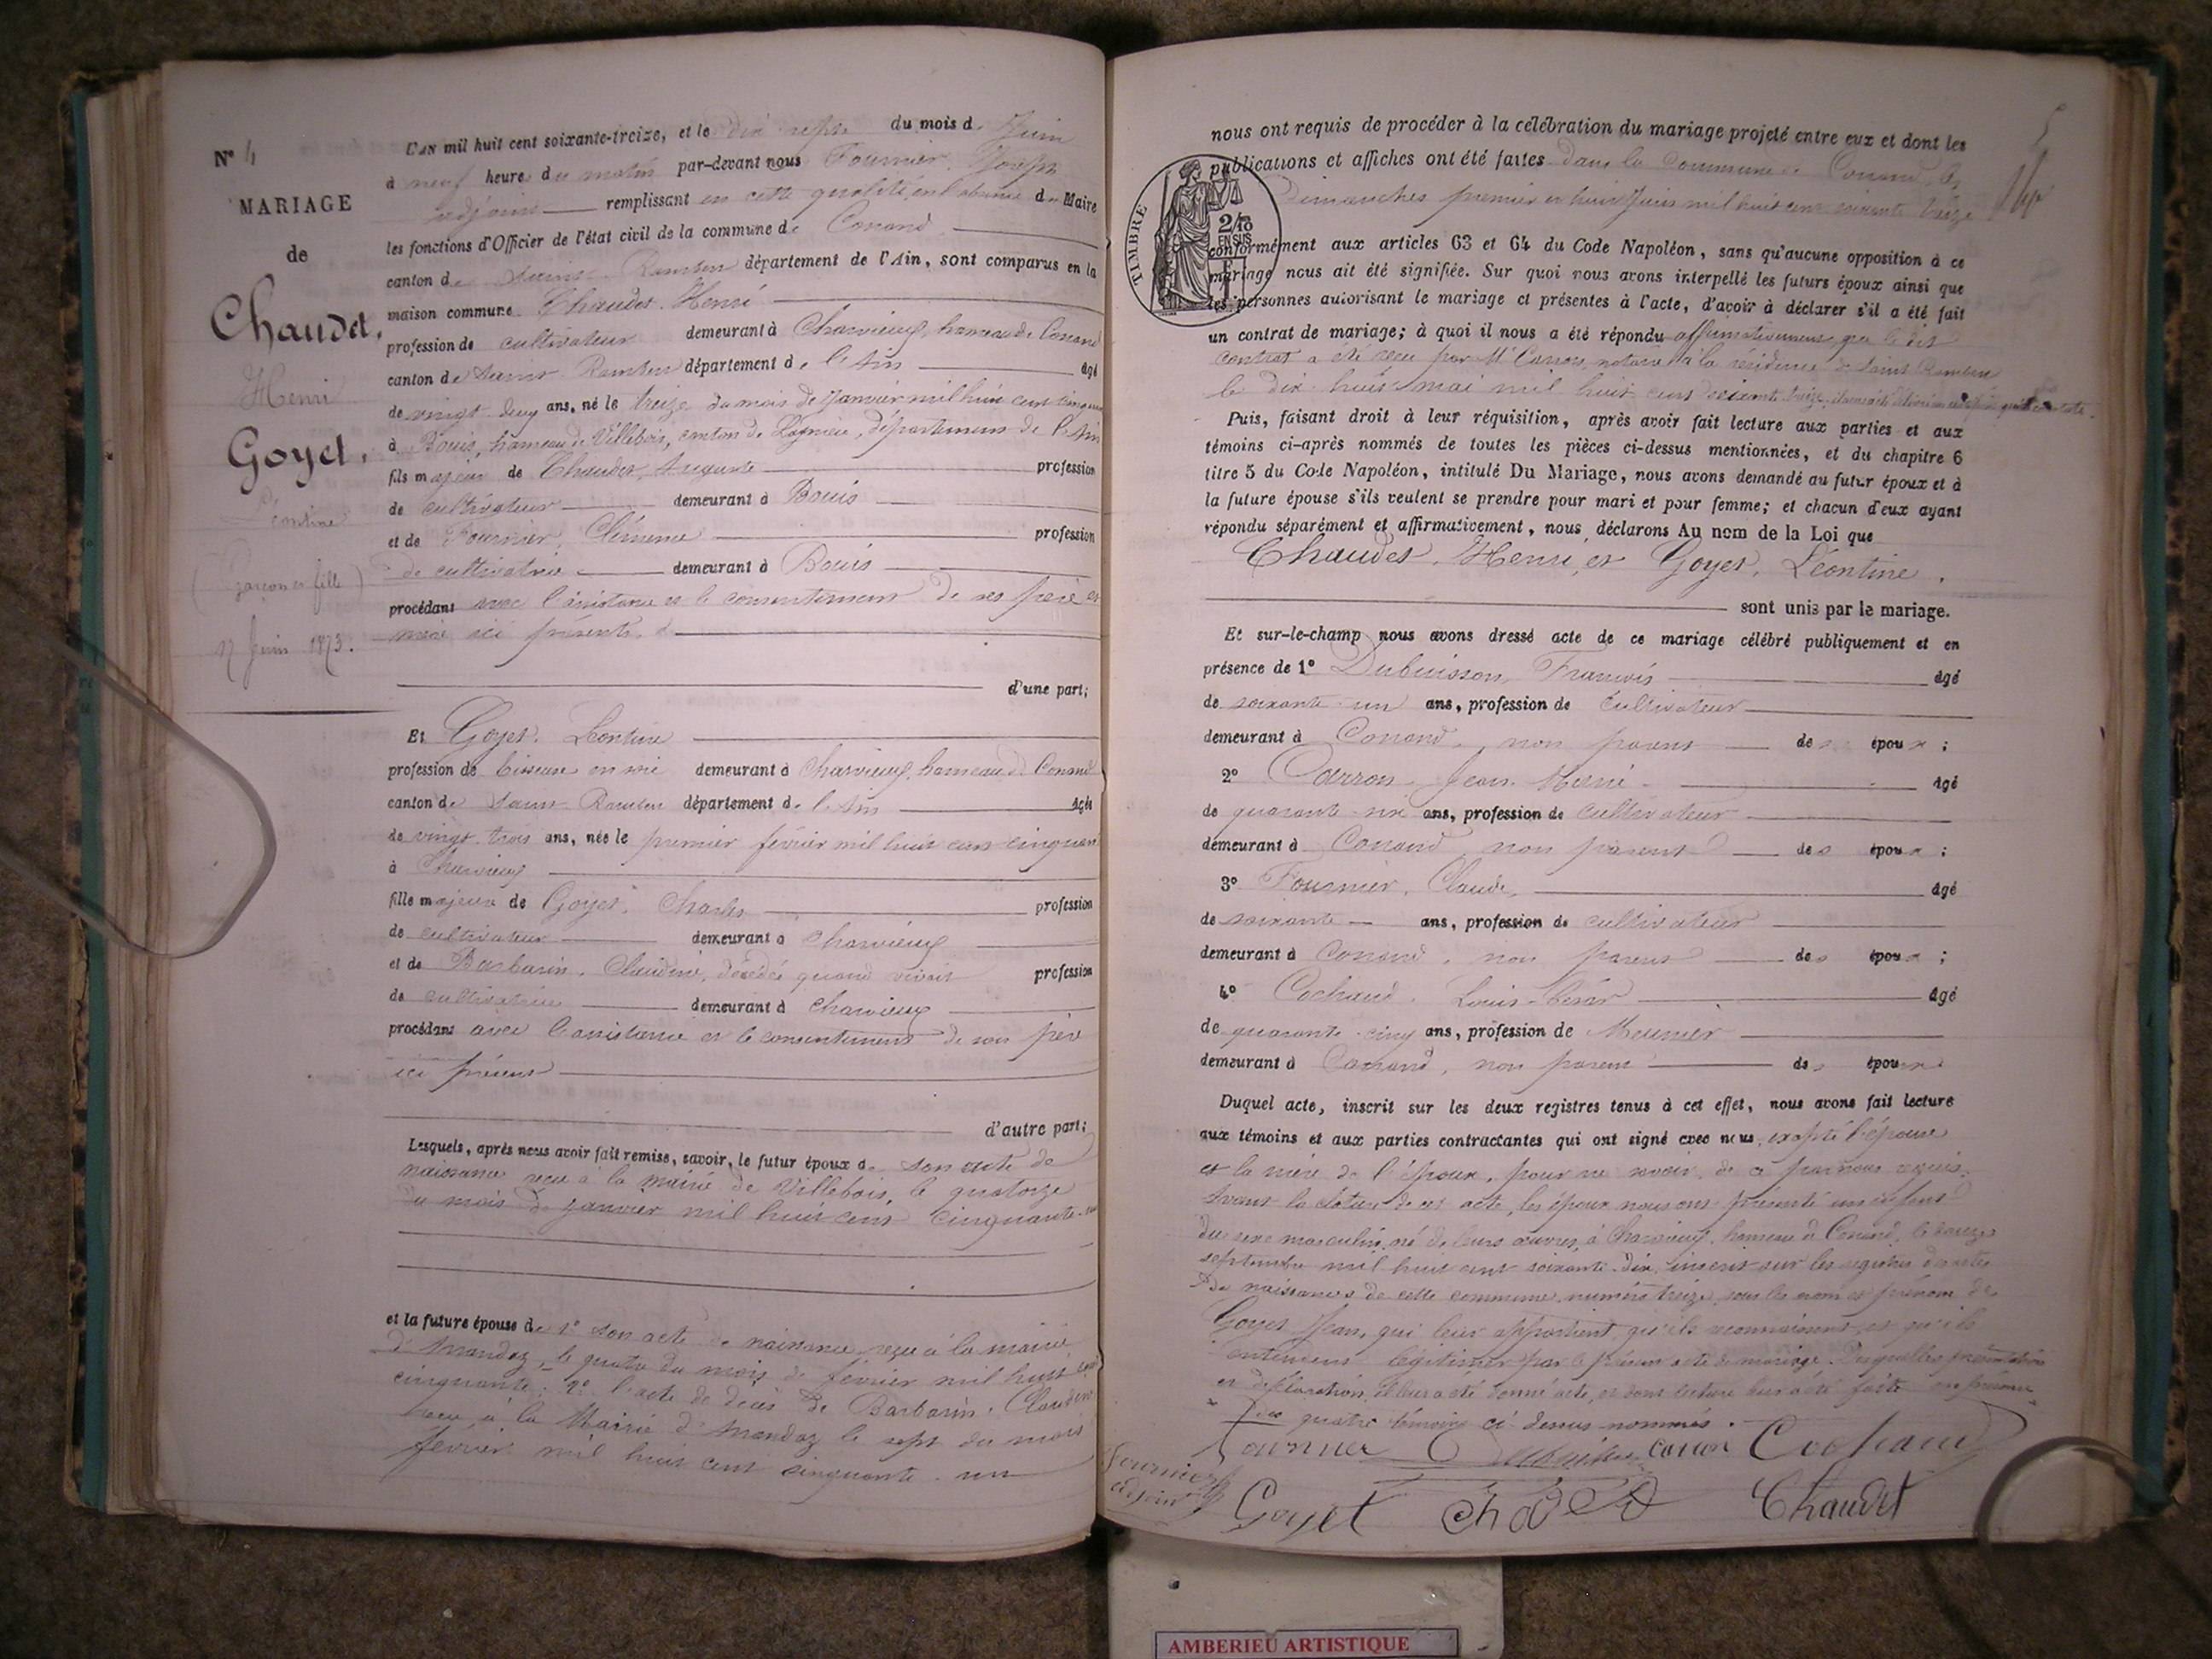 N° 4
MARIAGE
de
Chaudet,
Henri
Goyet,
Léontine
(garçon et fille)
17 Juin 1873.
L'AN mil huit cent soixante-treize, et le dix sept du mois de Juin
à neuf heure du matin par-devant nous Fournier, Joseph
adjoint remplissant en cette qualité, en l'absence du Maire
les fonctions d'Officier de l'état civil de la commune de Conand
canton de Saint Rambert département de l'Ain, sont comparus en la
maison commune Chaudet Henri
profession de cultivateur demeurant à Charvieux, hameau de Conand
canton de Saint Rambert département de l'Ain âgé
de vingt deux ans, né le treize du mois de Janvier mil huit cent cinquante
à Bouis, hameau de Villebois, canton de Lagnieu, département de l'Ain
fils majeur de Chaudet, Auguste profession
de cultivateur demeurant à Bouis
et de Fournier, Clémence profession
de cultivatrice demeurant à Bouis
procédant avec l'assistance et le consentement de ses père et
mère ici présents
d'une part;
Et Goyet, Léontine
profession de tisseuse en soie demeurant à Charvieux, hameau de Conand
canton de Saint-Rambert département de l'Ain âgée
de vingt-trois ans, née le premier février mil huit cent cinquante
à Charvieux
fille majeure de Goyet, Charles profession
de cultivateur demeurant à Charvieux
et de Barbarin, Claudine, décédée quand vivait profession
de cultivatrice demeurant à Charvieux
procédant avec l'assistance et le consentement de son père
ici présent
d'autre part;
Lesquels, après nous avoir fait remise, savoir, le futur époux de son acte de
naissance reçu à la mairie de Villebois, le quatorze
du mois de janvier mil huit cent cinquante-un
et la future épouse de 1° son acte de naissance reçu à la mairie
d'Arandaz, le quatre du mois de février mil huit cent
cinquante; 2° l'acte de décès de Barbarin, Claudine
reçu à la Mairie d'Arandaz le sept du mois
février mil huit cent cinquante-un
nous ont requis de procéder à la célébration du mariage projeté entre eux et dont les
publications et affiches ont été faites dans la commune de Conand, les
dimanches premier et huit Juin mil huit cent soixante treize
TIMBRE
2/10
EN SUS
conformément aux articles 63 et 64 du Code Napoléon, sans qu'aucune opposition à ce
mariage nous ait été signifiée. Sur quoi nous avons interpellé les futurs époux ainsi que
les personnes autorisant le mariage et présentes à l'acte, d'avoir à déclarer s'il a été fait
un contrat de mariage; à quoi il nous a été répondu affirmativement, que le dit
contrat a été reçu par Me notaire à la résidence de Saint Rambert
le dix-huit mai mil huit cent soixante treize
Puis, faisant droit à leur réquisition, après avoir fait lecture aux parties et aux
témoins ci-après nommés de toutes les pièces ci-dessus mentionnées, et du chapitre 6
titre 5 du Code Napoléon, intitulé Du Mariage, nous avons demandé au futur époux et à
la future épouse s'ils veulent se prendre pour mari et pour femme; et chacun d'eux ayant
répondu séparément et affirmativement, nous déclarons Au nom de la Loi que
Chaudet, Henri, et Goyet, Léontine,
sont unis par le mariage.
Et sur-le-champ nous avons dressé acte de ce mariage célébré publiquement et en
présence de 1° Dubuisson, François âgé
de soixante-un ans, profession de cultivateur
demeurant à Conand, non parent des époux;
2° Carron, Jean-Marie âgé
de quarante-six ans, profession de cultivateur
demeurant à Conand, non parent des époux;
3° Fournier, Claude, âgé
de soixante ans, profession de cultivateur
demeurant à Conand, non parent des époux;
4° Cochand, Louis-César âgé
de quarante-cinq ans, profession de Meunier
demeurant à Conand, non parent des époux
Duquel acte, inscrit sur les deux registres tenus à cet effet, nous avons fait lecture
aux témoins et aux parties contractantes qui ont signé avec nous, excepté l'épouse
et la mère de l'époux, pour ne savoir, de ce par nous requis.
Avant la clôture de cet acte, les époux nous ont présenté un enfant
du sexe masculin, né de leurs œuvres, à Charvieux, hameau de Conand, le
septembre mil huit cent soixante-dix, inscrit sur les registres d'actes
de naissances de cette commune, numéro treize, sous les nom et prénom de
Goyet Jean, qui leur appartient, qu'ils reconnaissent, et qu'ils
entendent légitimer par le présent acte de mariage. Desquelles présentation
et déclaration, il leur a été donné acte, et dont lecture leur a été faite en présence
des quatre témoins ci-dessus nommés.
Fournier Dubuisson Carron Cochand
Fournier
adjoint
Goyet Chaudet Chaudet
AMBERIEU ARTISTIQUE